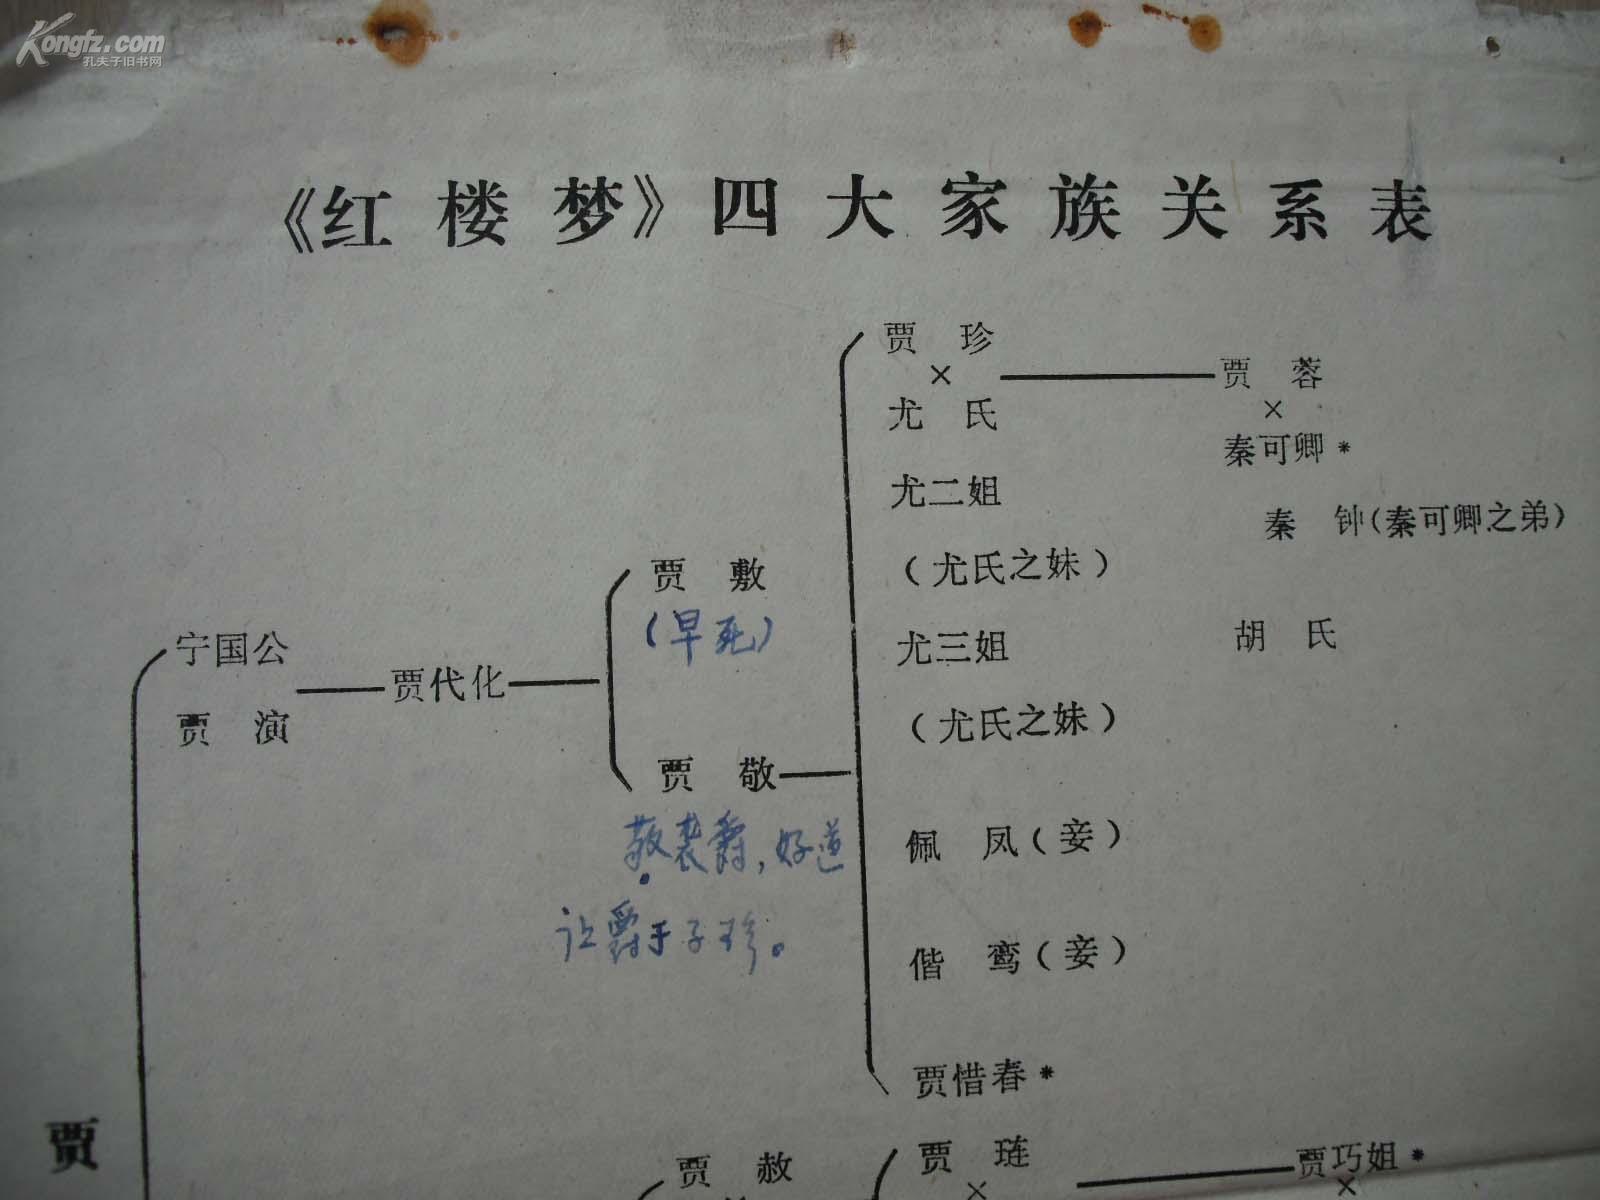 Kongfz.com
孔夫子旧书网
《红楼梦》四大家族关系表
贾珍
×
尤氏
尤二姐
（尤氏之妹）
尤三姐
（尤氏之妹）
佩凤（妾）
偕鸾（妾）
贾惜春*
贾蓉
×
秦可卿*
秦钟（秦可卿之弟）
胡氏
贾敷
（早死）
贾敬
敬袭爵，好道
让爵于子珍。
宁国公
贾演
贾代化
贾
贾赦
贾琏
×
贾巧姐*
×